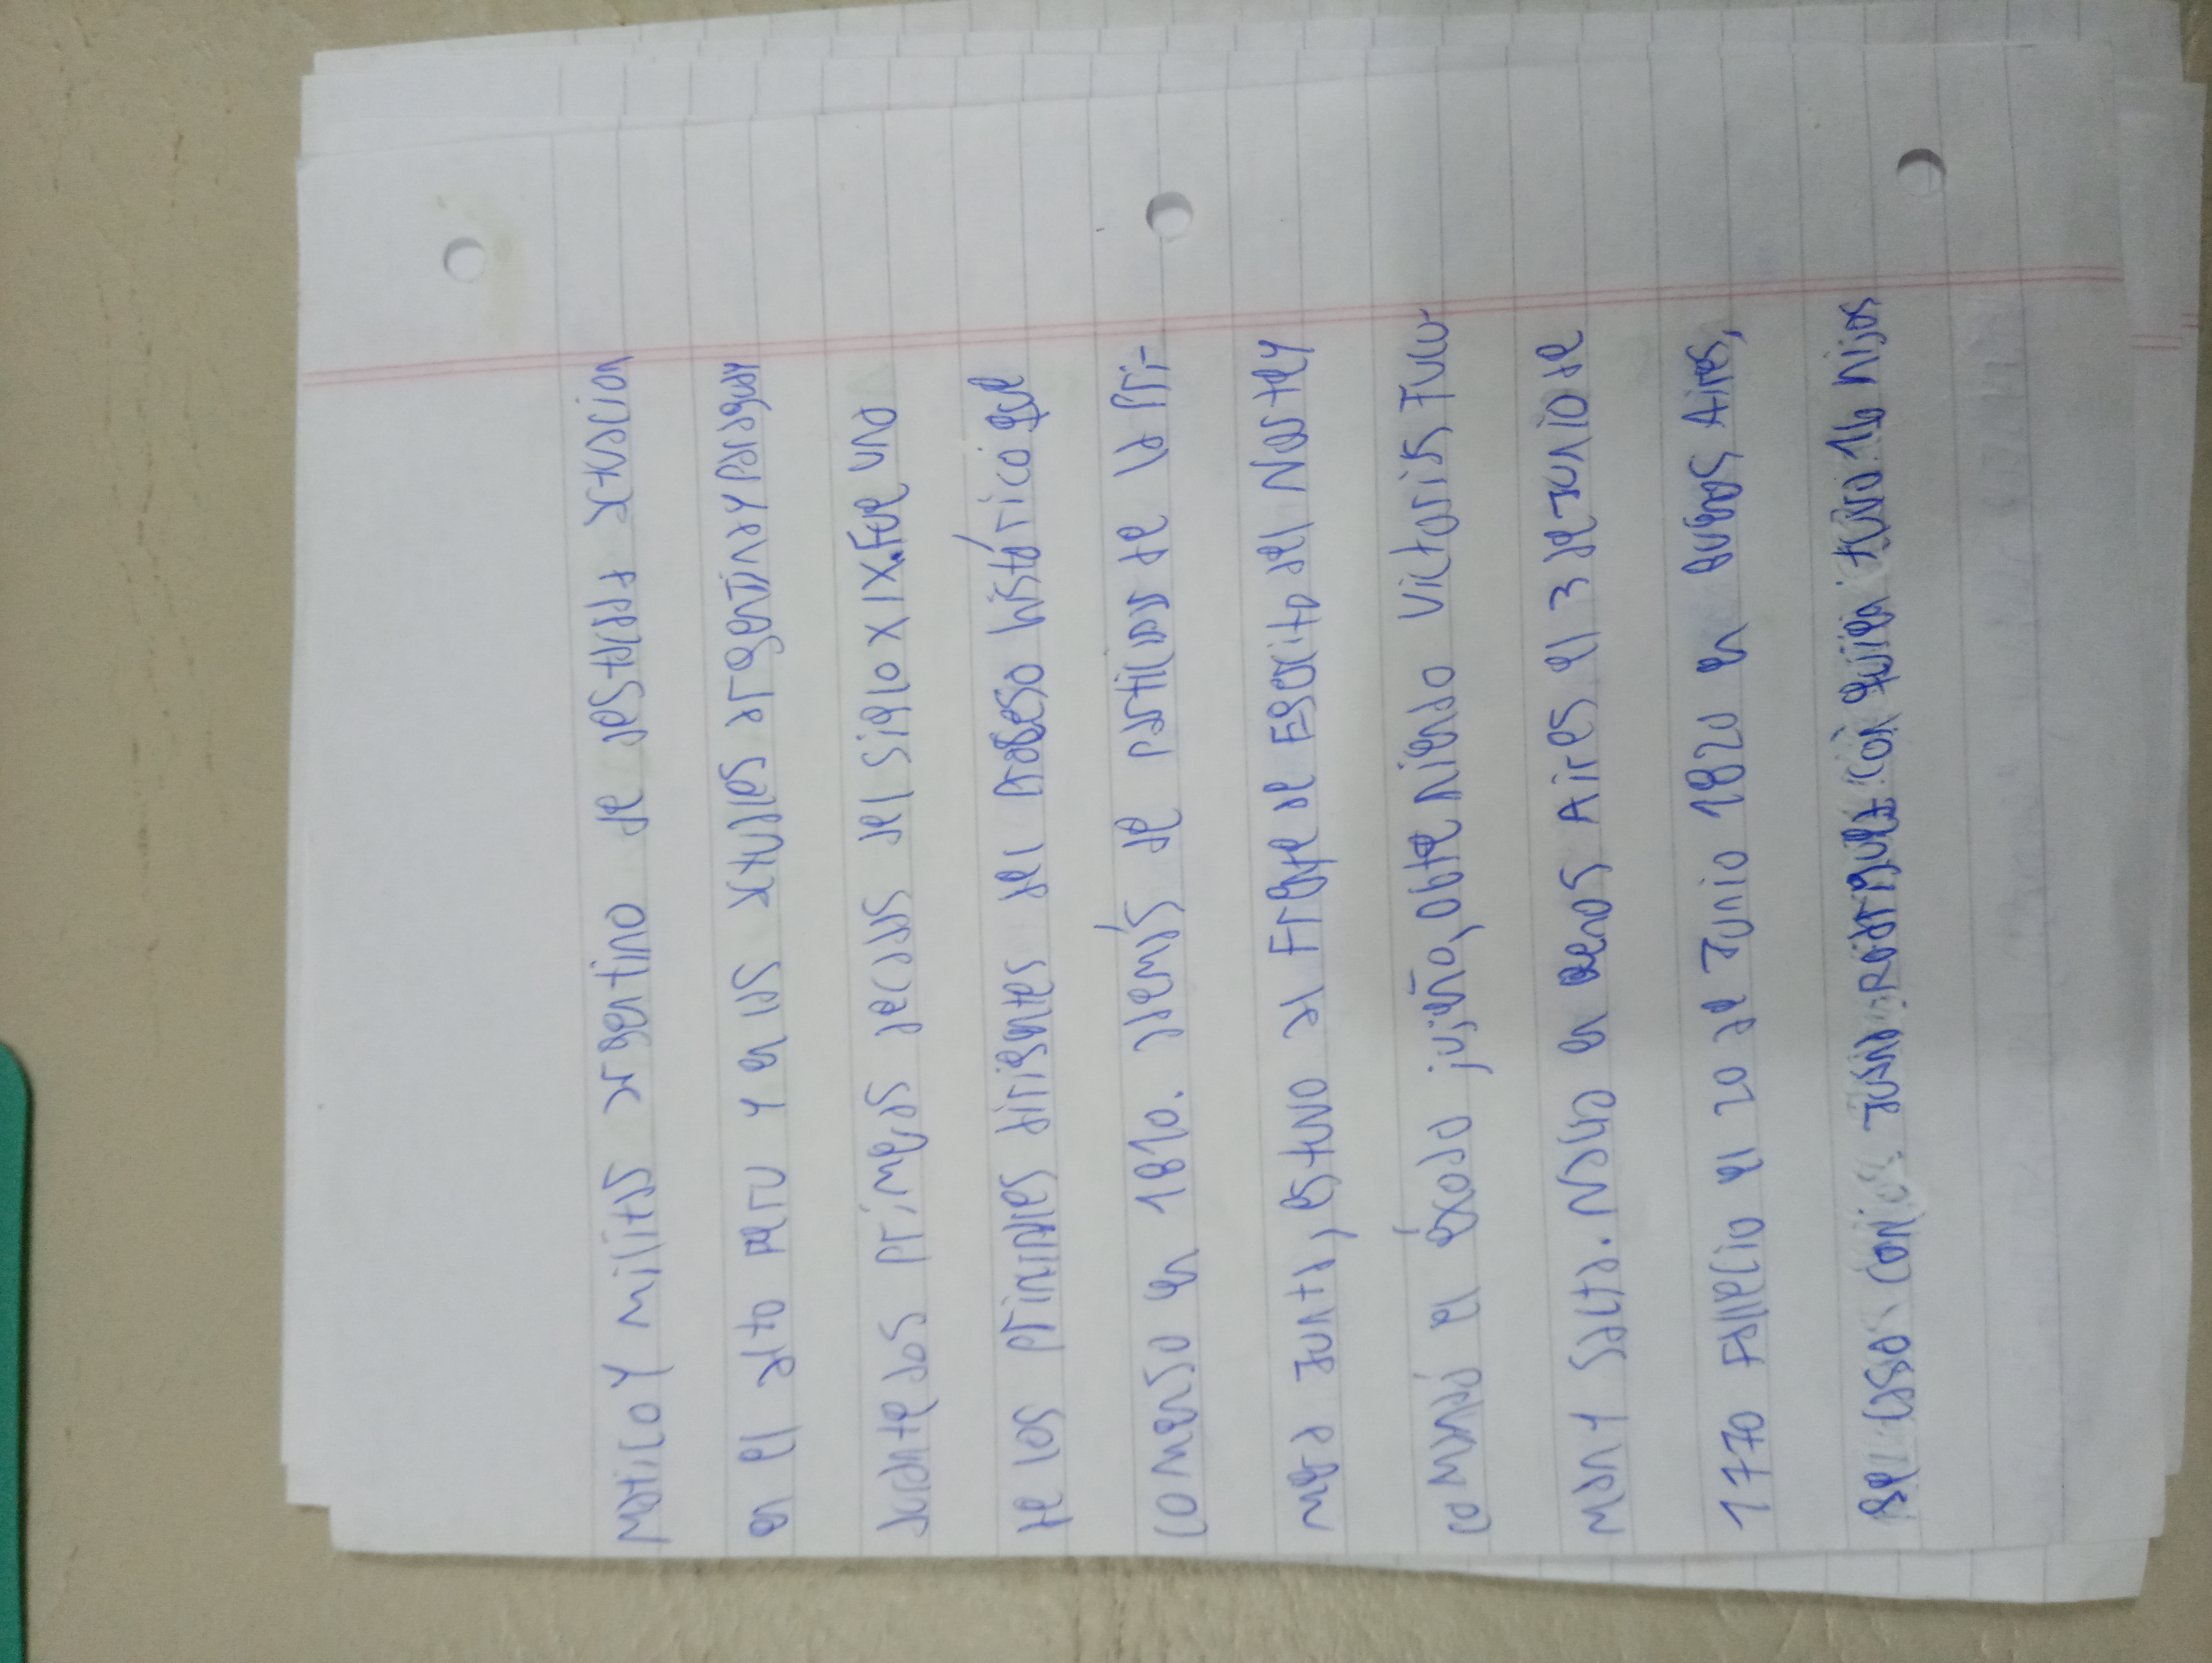 matico y militar argentino de destacada actuacion
en el alto peru y en las actuales argentina y paraguay
durante las primeras decadas del siglo XIX. Fue uno
de los principales dirigentes del proceso histórico que
comenso en 1810. además de participar de la pri-
mera Junta, estuvo al Frente de Esercito del Norte y
comandó el éxodo jujeño, obteniendo victoria en Tucu-
man y Salta. Nacio en buenos Aires el 3 de Junio de
1770 Fallecio el 20 de Junio 1820 en buenos Aires,
se caso con Juana Rodriguez con quien tuvo 16 hijos